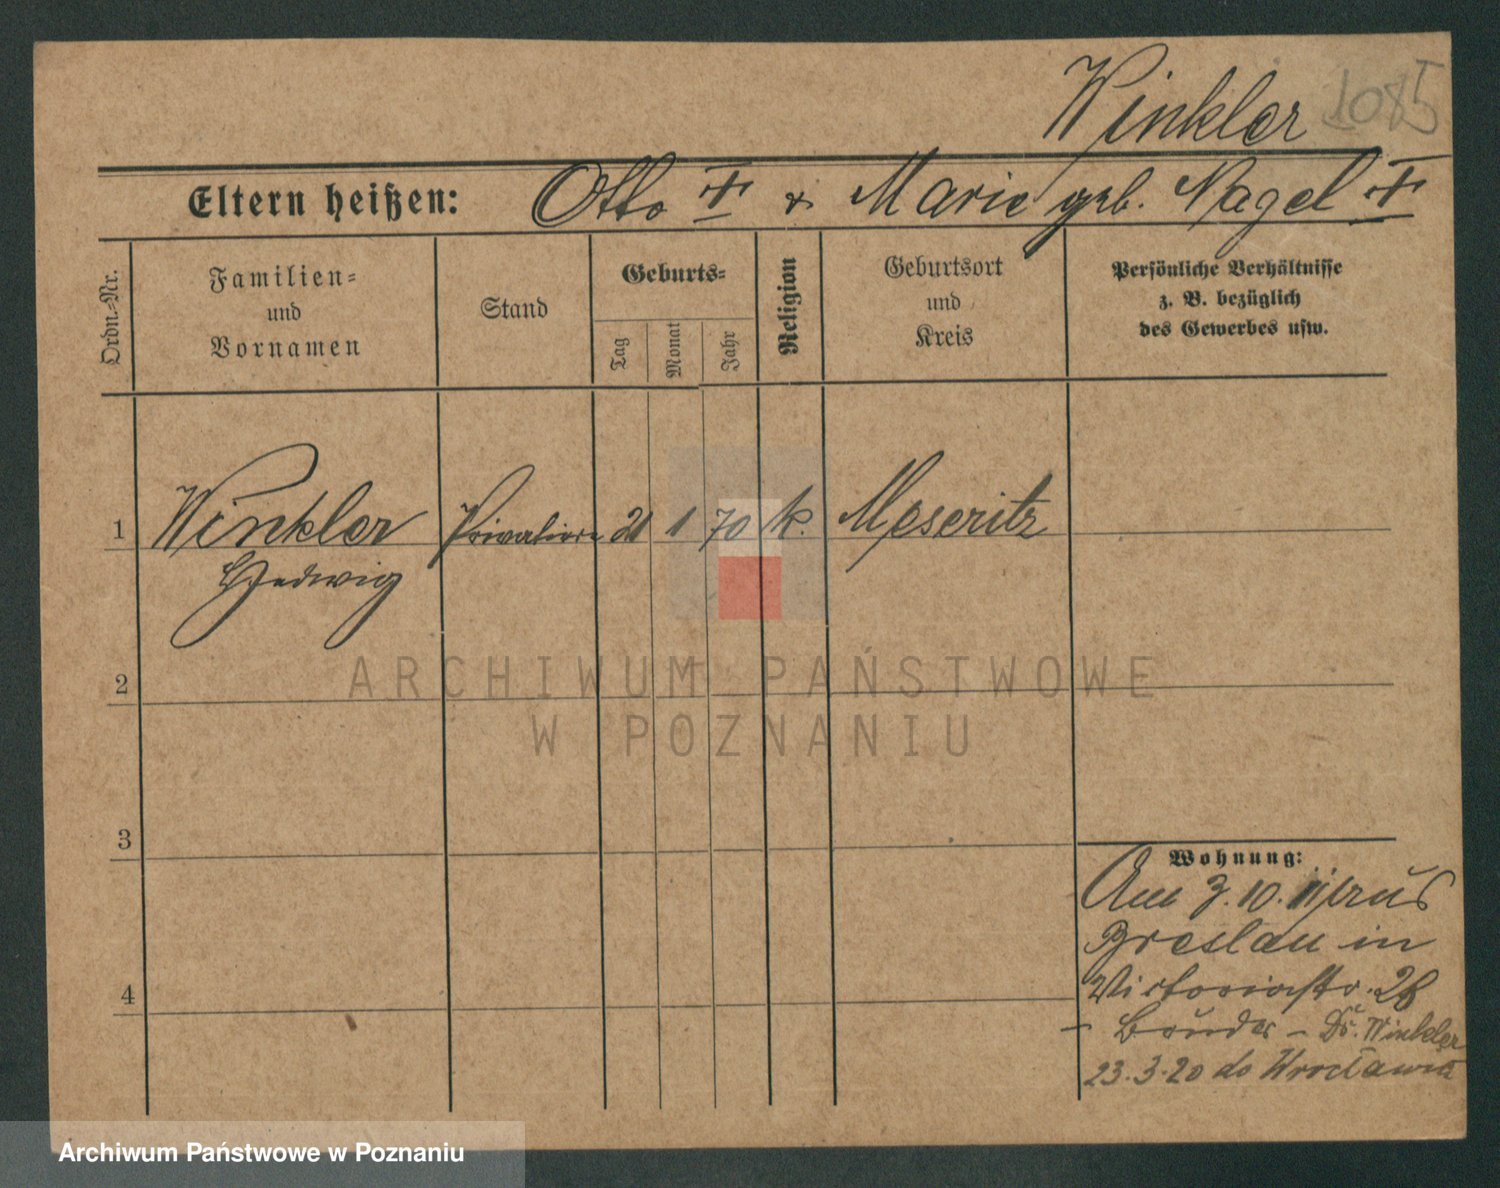 Winkler 1085
Eltern heißen: Otto † & Marie geb. Nagel †
Ordn.-Nr.
Familien-
und
Vornamen
Stand
Geburts-
Tag
Monat
Jahr
Religion
Geburtsort
und
Kreis
Persönliche Verhältnisse
z. B. bezüglich
des Gewerbes usw.
1 Winkler Privatiere 21 1 70 k. Meseritz
Hedwig
2
3
4
Wohnung:
Am 3. 10. aus
Breslau in
Victoriastr. 28
- Bruder - Dr. Winkler
23.3.20 do Wrocławia
ARCHIWUM PAŃSTWOWE
W POZNANIU
Archiwum Państwowe w Poznaniu